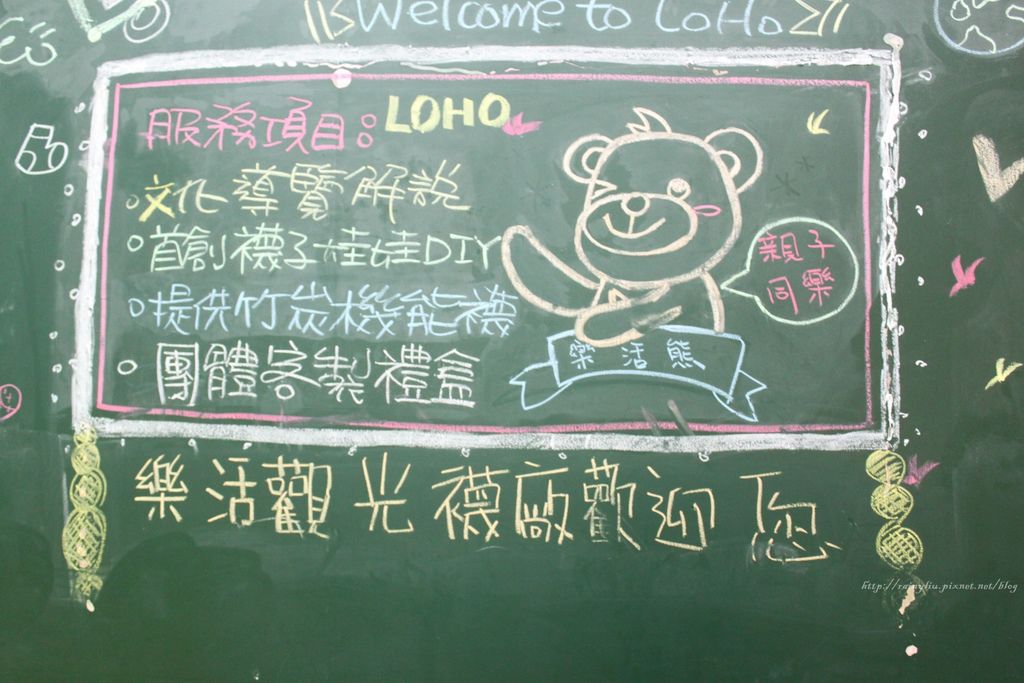 Welcome to LoHo
服務項目: LOHO
文化導覽解說
首創襪子娃娃DIY
提供竹炭機能襪
團體客製禮盒
親子
同樂
樂活熊
樂活觀光襪廠歡迎您
http://rainyliu.pixnet.net/blog